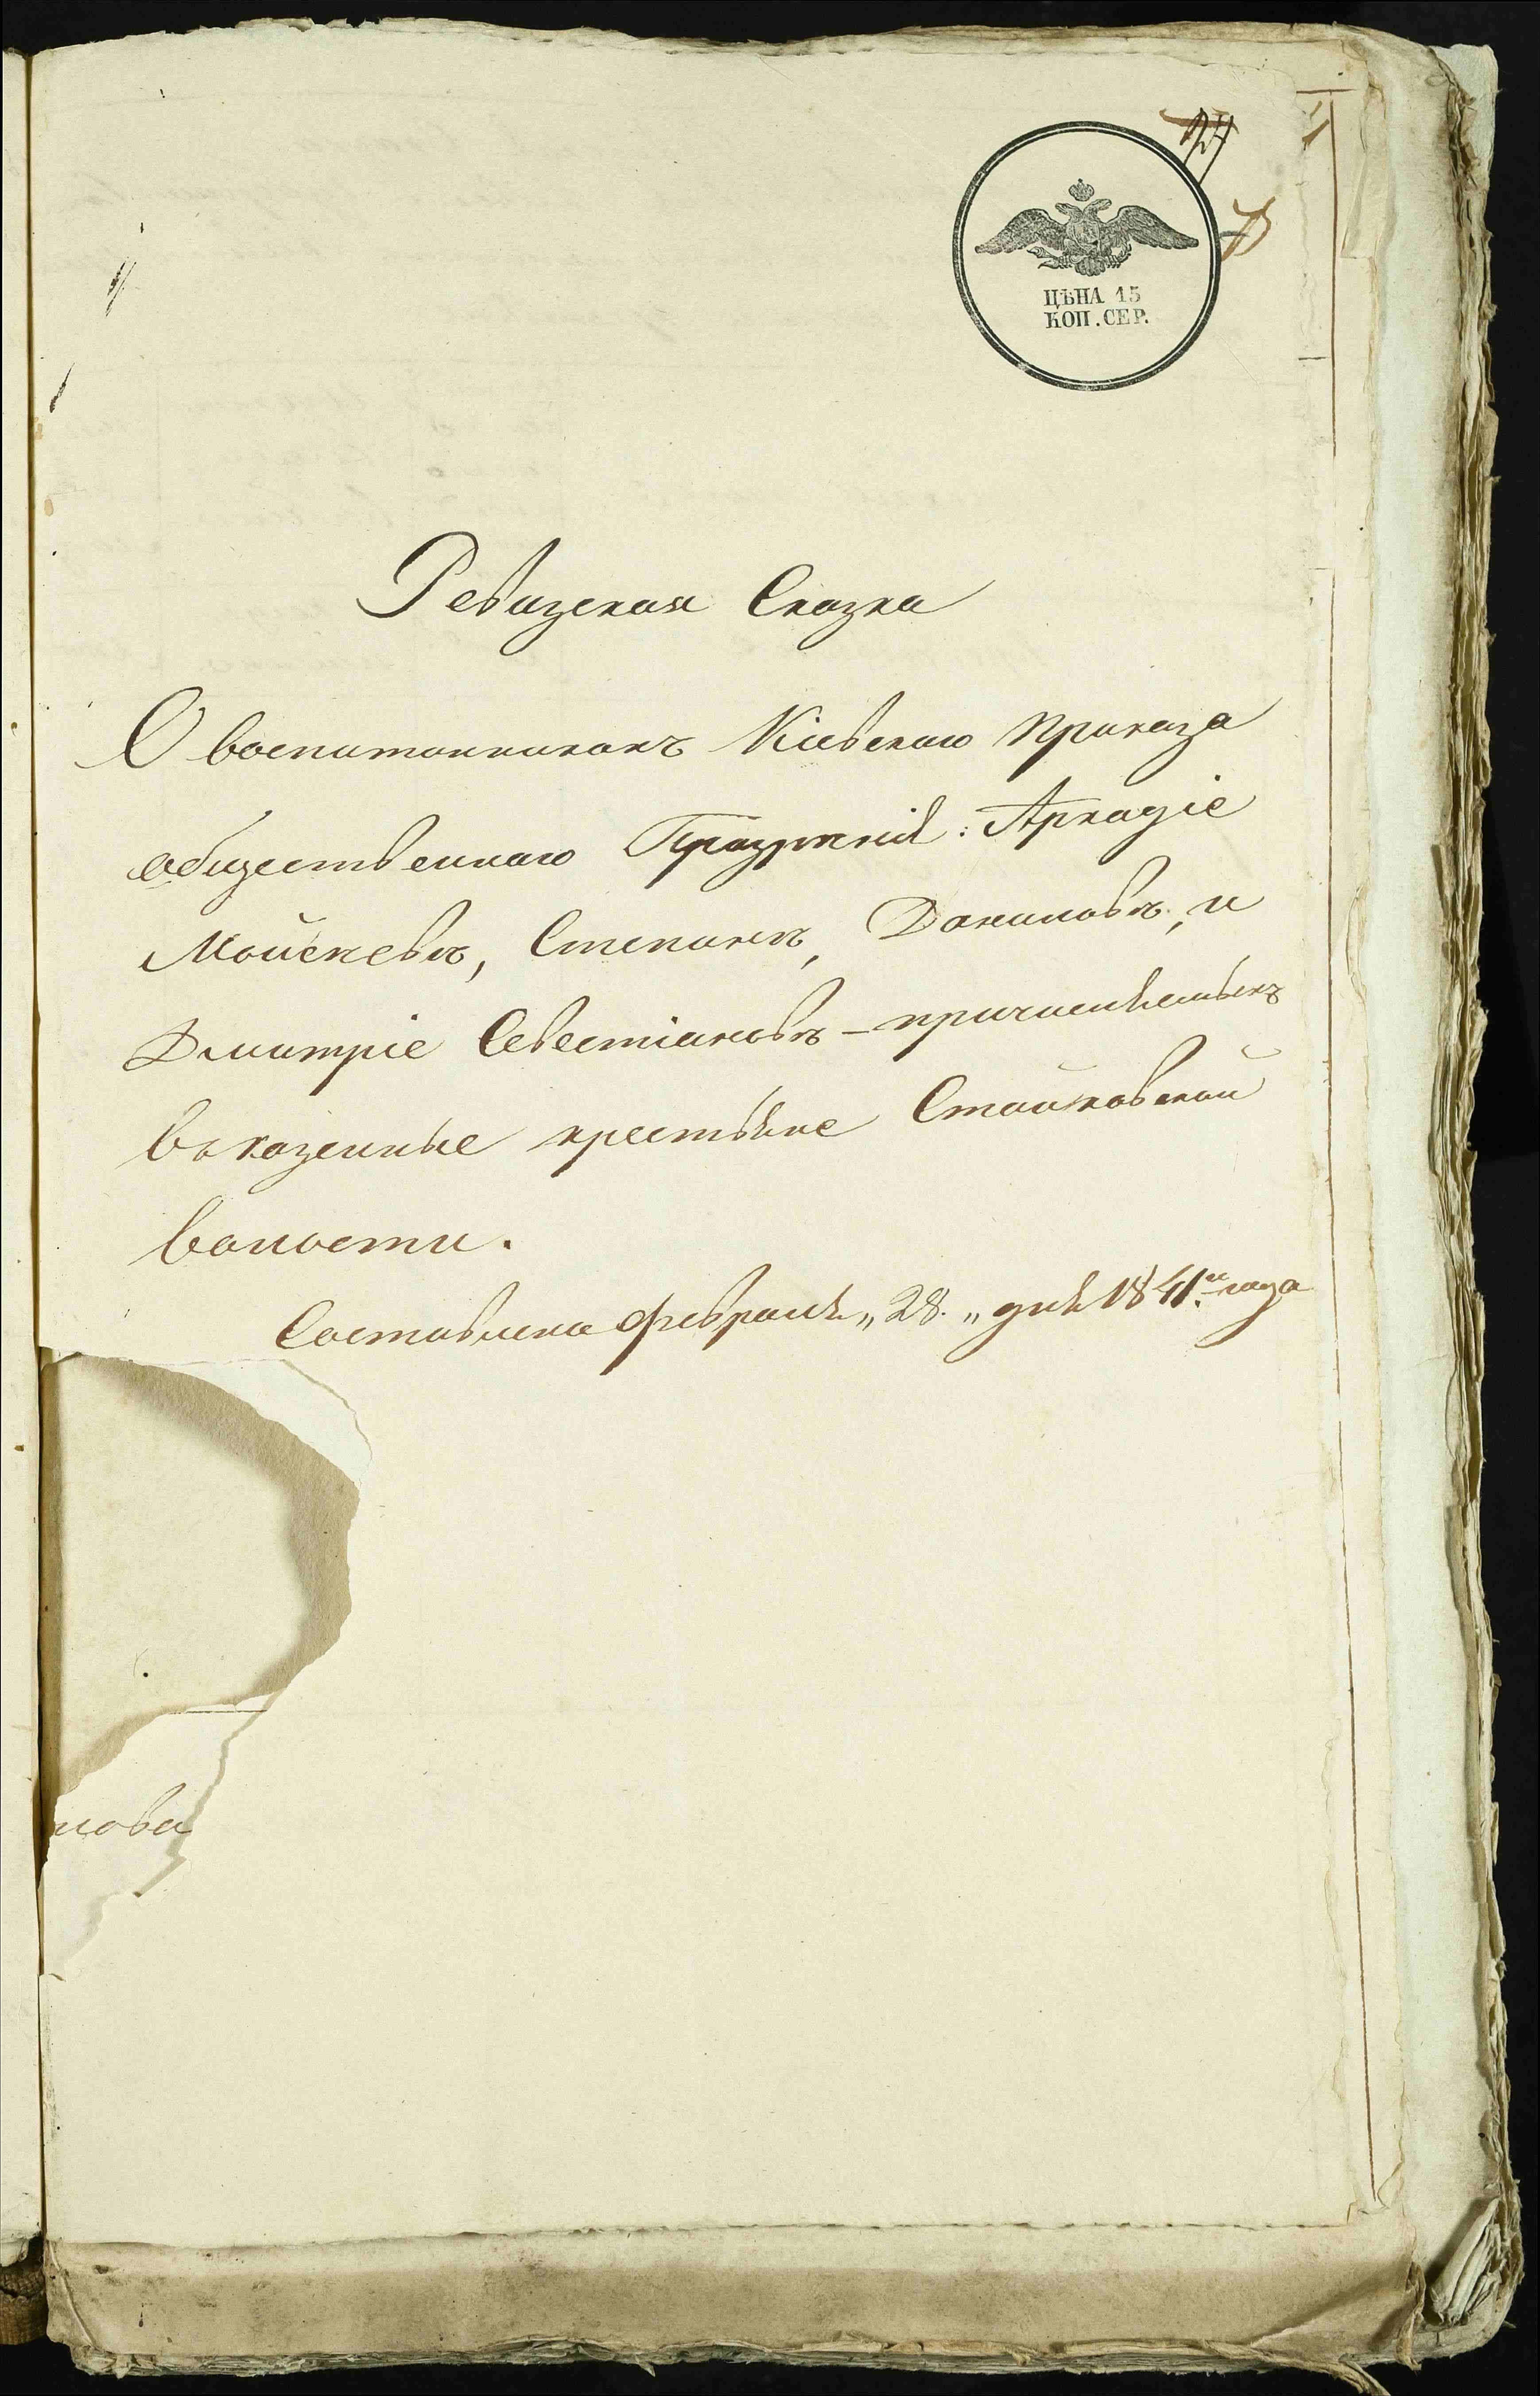 ЦѢНА 15
КОП. СЕР.
Ревизская Сказка
О воспитанникахъ Кіевскаго приказа
общественнаго Призрѣнія: Аркадіе
Мойсеевѣ, Степанѣ, Даниловѣ, и
Дмитріе Севестіановѣ – причисленныхъ
въ казенные крестьяне Стайковской
волости.
Составлена февраля „28„ дня 1841го года
нова